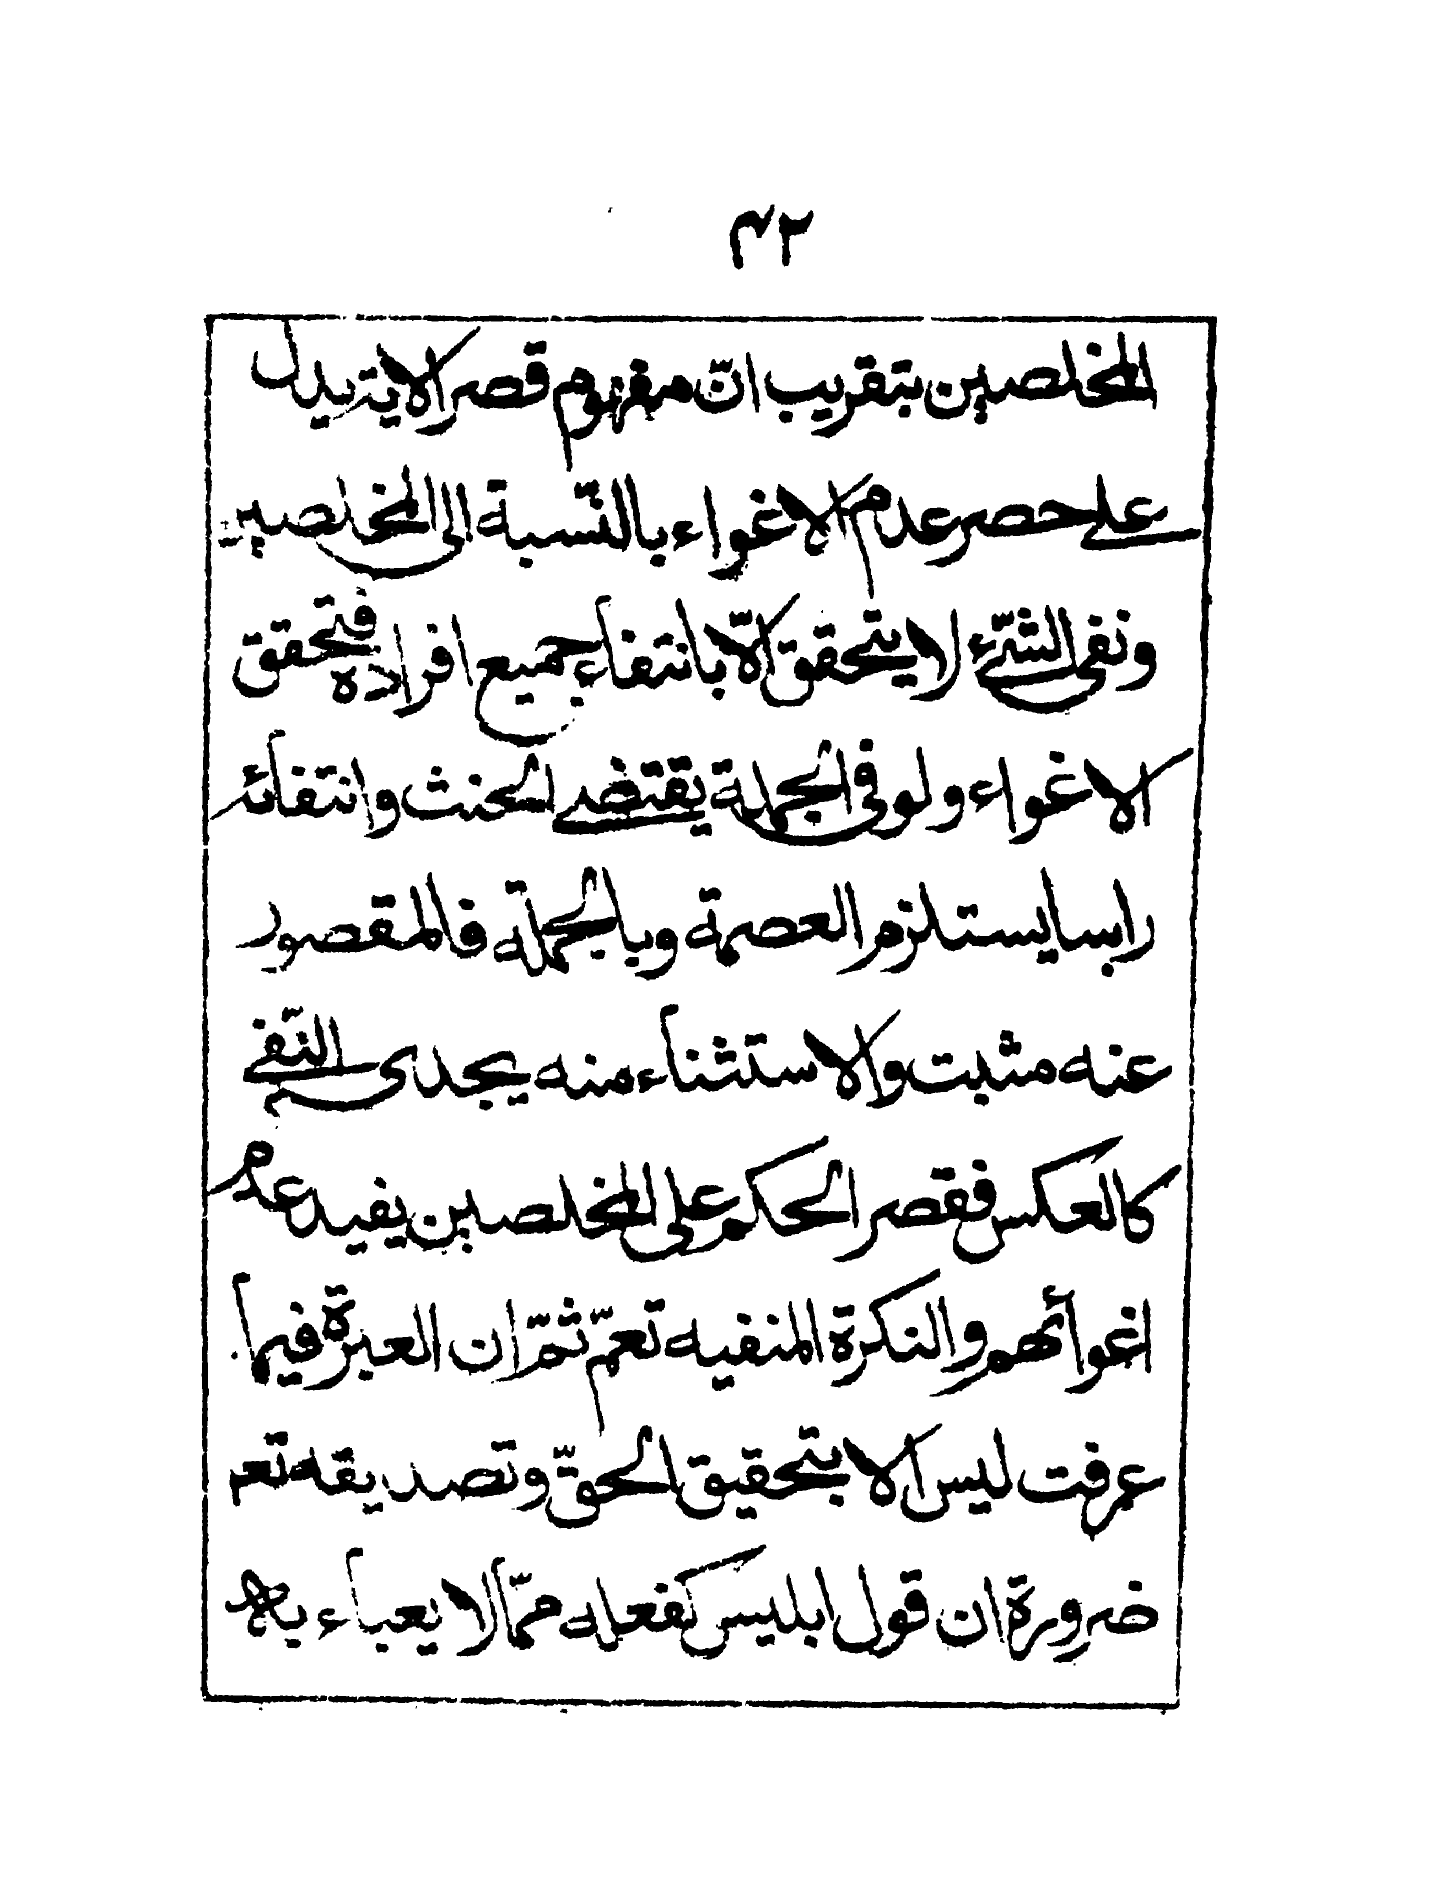 ۴۲
المخلصين بتقريب انّ مفهوم قصر الاية يدل
على حصر عدم الاغواء بالنّسبة الى المخلصين
ونفى الشّىء لا يتحقق الّا بانتفاء جميع افراده فتحقق
الاغواء ولو فى الجملة يقتضى الحنث وانتفائه
راسا يستلزم العصمة وبالجملة فالمقصور
عنه مثبت والاستثناء منه يجدى النّفى
كالعكس فقصر الحكم على المخلصين يفيد عدم
اغوائهم والنكرة المنفيه تعمّ ثمّ ان العبرة فيما
عرفت ليس الا بتحقيق الحقّ وتصديقه تعم
ضرورة ان قول ابليس كفعله ممّا لا يعباء به